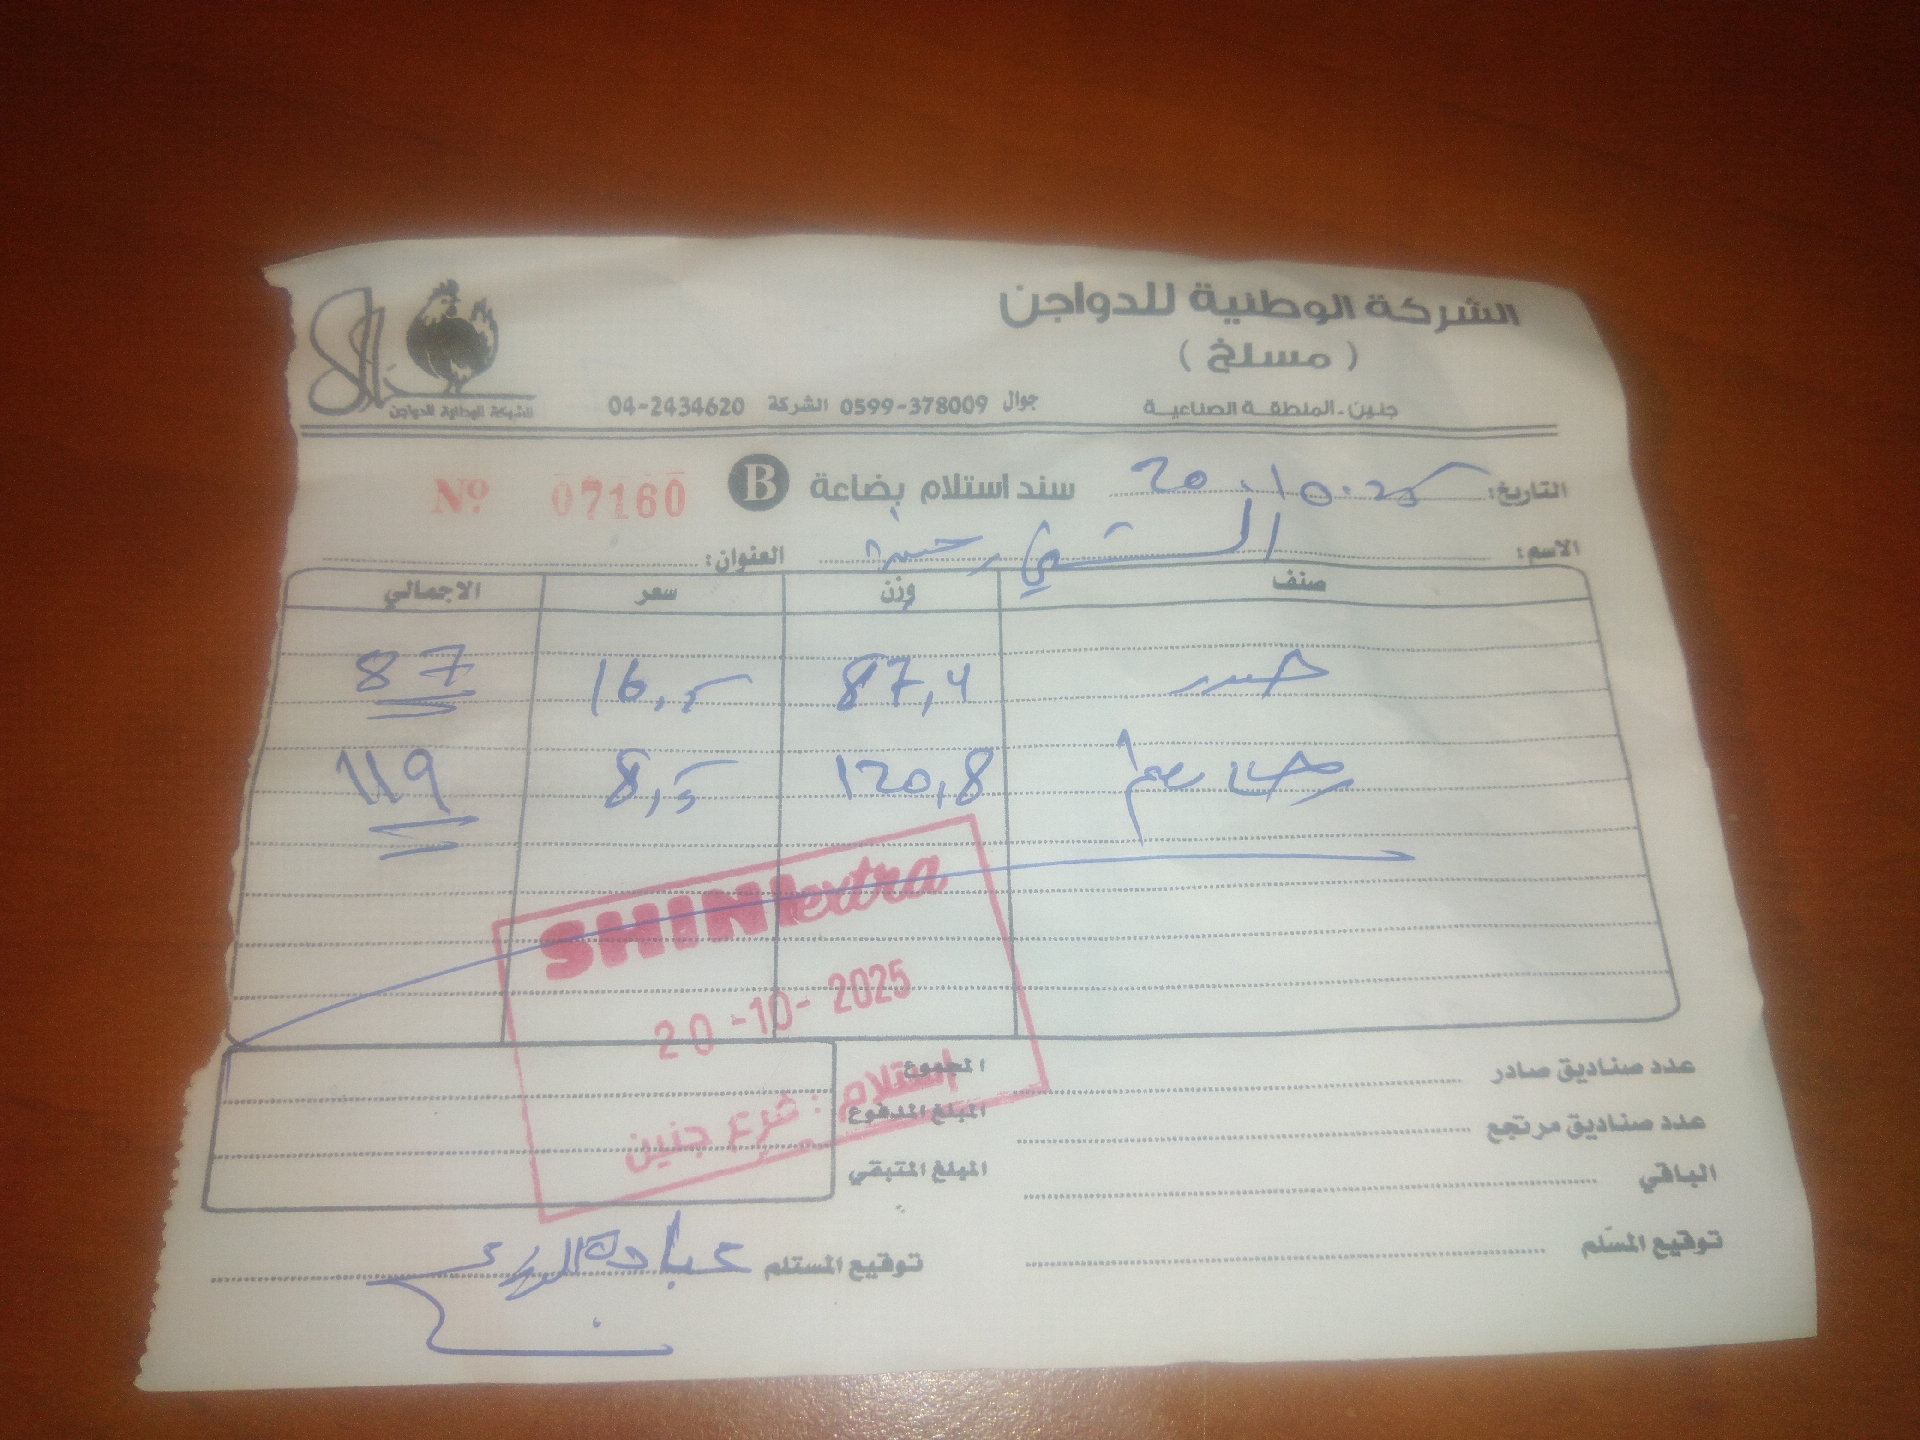 الشركة الوطنية للدواجن
( مسلخ )
جنين - المنطقة الصناعية جوال 0599-378009 الشركة 04-2434620
الشركة الوطنية للدواجن
التاريخ: 20.10.25 سند استلام بضاعة B 07160 Nº
الاسم: الشني العنوان:
صنف وزن سعر الاجمالي
87,4 16,5 87
120,8 8,5 119
SHINI extra
20-10-2025
استلام : فرع جنين
عدد صناديق صادر المجموع
عدد صناديق مرتجع المبلغ المدفوع
الباقي المبلغ المتبقي
توقيع المسلم توقيع المستلم عبادة